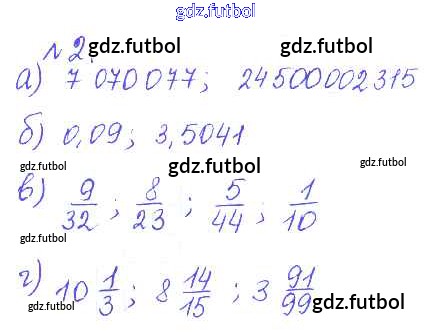 gdz.futbol
№ 2. gdz.futbol gdz.futbol
а) 7 070 077; 24500002315
б) 0,09; 3,5041
gdz.futbol gdz.futbol gdz.futbol
в) 9/32; 8/23; 5/44; 1/10
gdz.futbol
г) 10 1/3; 8 14/15; 3 91/99
gdz.futbol gdz.futbol